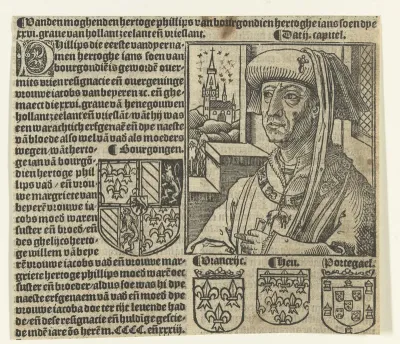 ¶Vanden moghenden hertoge phillips van bourgondien hertoghe ians soen dye
xxvi. graue van hollant zeelant eñ vrieslant. ¶Dat ij. capitel.
PHillips die eerste van dyer na
men hertoghe ians soen van
bourgondiē is gewordē ouer
mits wien resignacie eñ overgevinge
vrouwe iacobs van beyeren ⁊c. eñ ghe
maect die xxvi. graue vā henegouwen
hollant zeelant eñ vrieslāt. wāt hij was
een warachtich erfgenaē eñ dye naeste
vā bloede also wel vā vad als moeders
wegen. wāt herto- ¶Bourgongen.
ge ian vā bourgō-
dien hertoge phil
lips vad eñ vrou
we margriete van
beyerē vrouwe ia-
cobs moed waren
suster eñ broed. eñ
des ghelijcs herto-
ge willem vā beye
rē vrouwe iacobs vad eñ vrouwe mar-
griete hertoge phillips moed warē oec
suster eñ broeder. aldus soe was hi dye
naeste erfgenaem vā vad eñ moed dye
vrouwe iacoba doe ter tijt levende had
de. eñ dese resignacie eñ huldige gescie
de indē iare ōs herē m. CCCC. eñ xxxiij.
¶Vrancrijc. ¶Heu. Portegael.